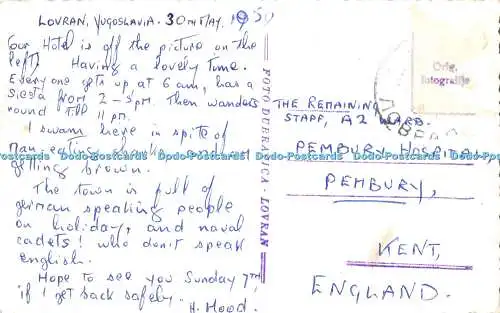 LOVRAN, YUGOSLAVIA. 30TH MAY, 1959
Our Hotel is off the picture on the
left! Having a lovely time.
Everyone gets up at 6 am, has a
siesta from 2 - 5 pm. Then wanders
round till 11 pm.
I swam here in spite of
man-eating sharks and
getting brown.
The town is full of
german speaking people
on holiday, and naval
cadets! who don't speak
english.
Hope to see you Sunday 7TH
if I get back safely.
H. Hood.
FOTO LOVRAN
Orig.
fotografije
THE REMAINING
STAFF, A2 WARD.
PEMBURY HOSPITAL
PEMBURY,
KENT,
ENGLAND.
Dodo-Postcards Dodo-Postcards Dodo-Postcards Dodo-Postcards Dodo-Postcards